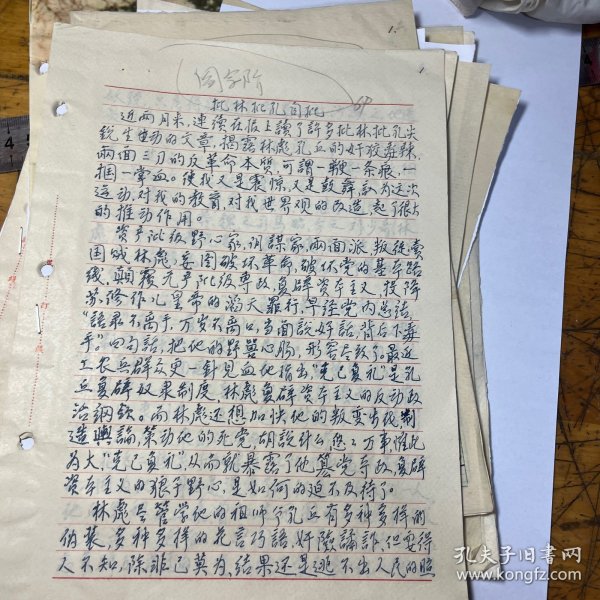 1.
1
(阎宝阶
批林批孔自批
近两月来，連續在报上讀了許多批林批孔尖
銳生动的文章，揭露林彪、孔丘的奸狡毒辣，
兩面三刀的反革命本质，可謂一鞭一条痕，一
掴一掌血。使我又是震惊，又是鼓舞，認为这次
运动，对我的教育，对我世界观的改造，起了很大
的推动作用。
资产阶级野心家，阴謀家，兩面派，叛徒，賣
国賊林彪，妄图破坏革命，破坏党的基本路
线，颠覆无产阶级専政，复辟资本主义，投降
苏修作儿皇帝的滔天罪行，早經党内总结，
“語录不离手，万岁不离口，当面説好話，背后下毒
手”四句話，把他的野獸心肠，形容尽致了。最近
工农兵群众更一針見血地指出“克己复礼”是孔
丘复辟奴隶制度，林彪复辟资本主义的反动政
治綱領。而林彪还想加快他的叛变步伐，制
造輿論，策动他的死党，胡説什么悠々万事，惟此
为大，“克己复礼”，从而就暴露了他篡党夺政，复辟
资本主义的狼子野心，是如何的迫不及待了。
林彪尽管学他的祖师爷孔丘有多种多样的
伪装，多种多样的花言巧語，奸險譎詐，但要得
人不知，除非己莫为，結果还是逃不出人民的照
孔夫子旧书网
www.kongfz.com